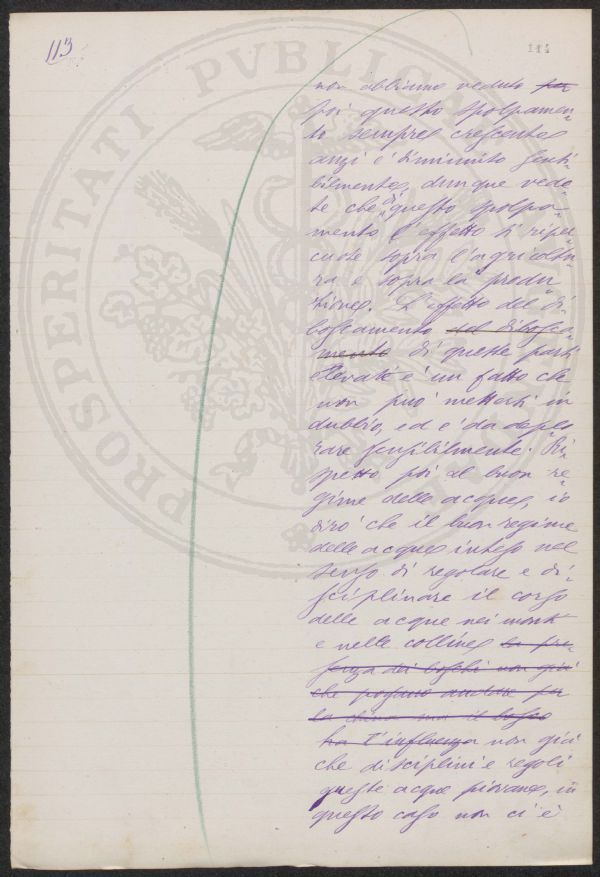 113
114
PROSPERITATI PVBLICAE
non abbiamo veduto per
poi questo spolpamen-
to sempre crescente
anzi è diminuito sensi-
bilmente, dunque vede-
te che di questo spolpa-
mento l'effetto si riper-
cuote sopra l'agricoltu-
ra e sopra la produ-
zione. L'effetto del di-
boscamento del disbosca-
mento di queste parti
elevate è un fatto che
non può mettersi in
dubbio, ed è da deplo-
rare sensibilmente. Ri-
spetto poi al buon re-
gime delle acque, io
dirò che il buon regime
delle acque inteso nel
senso di regolare e di-
sciplinare il corso
delle acque nei monti
e nelle colline la pre-
senza dei boschi non già
che possano andare per
la china ma il bosco
ha l'influenza non già
che disciplini e regoli
queste acque piovane, in
questo caso non ci è